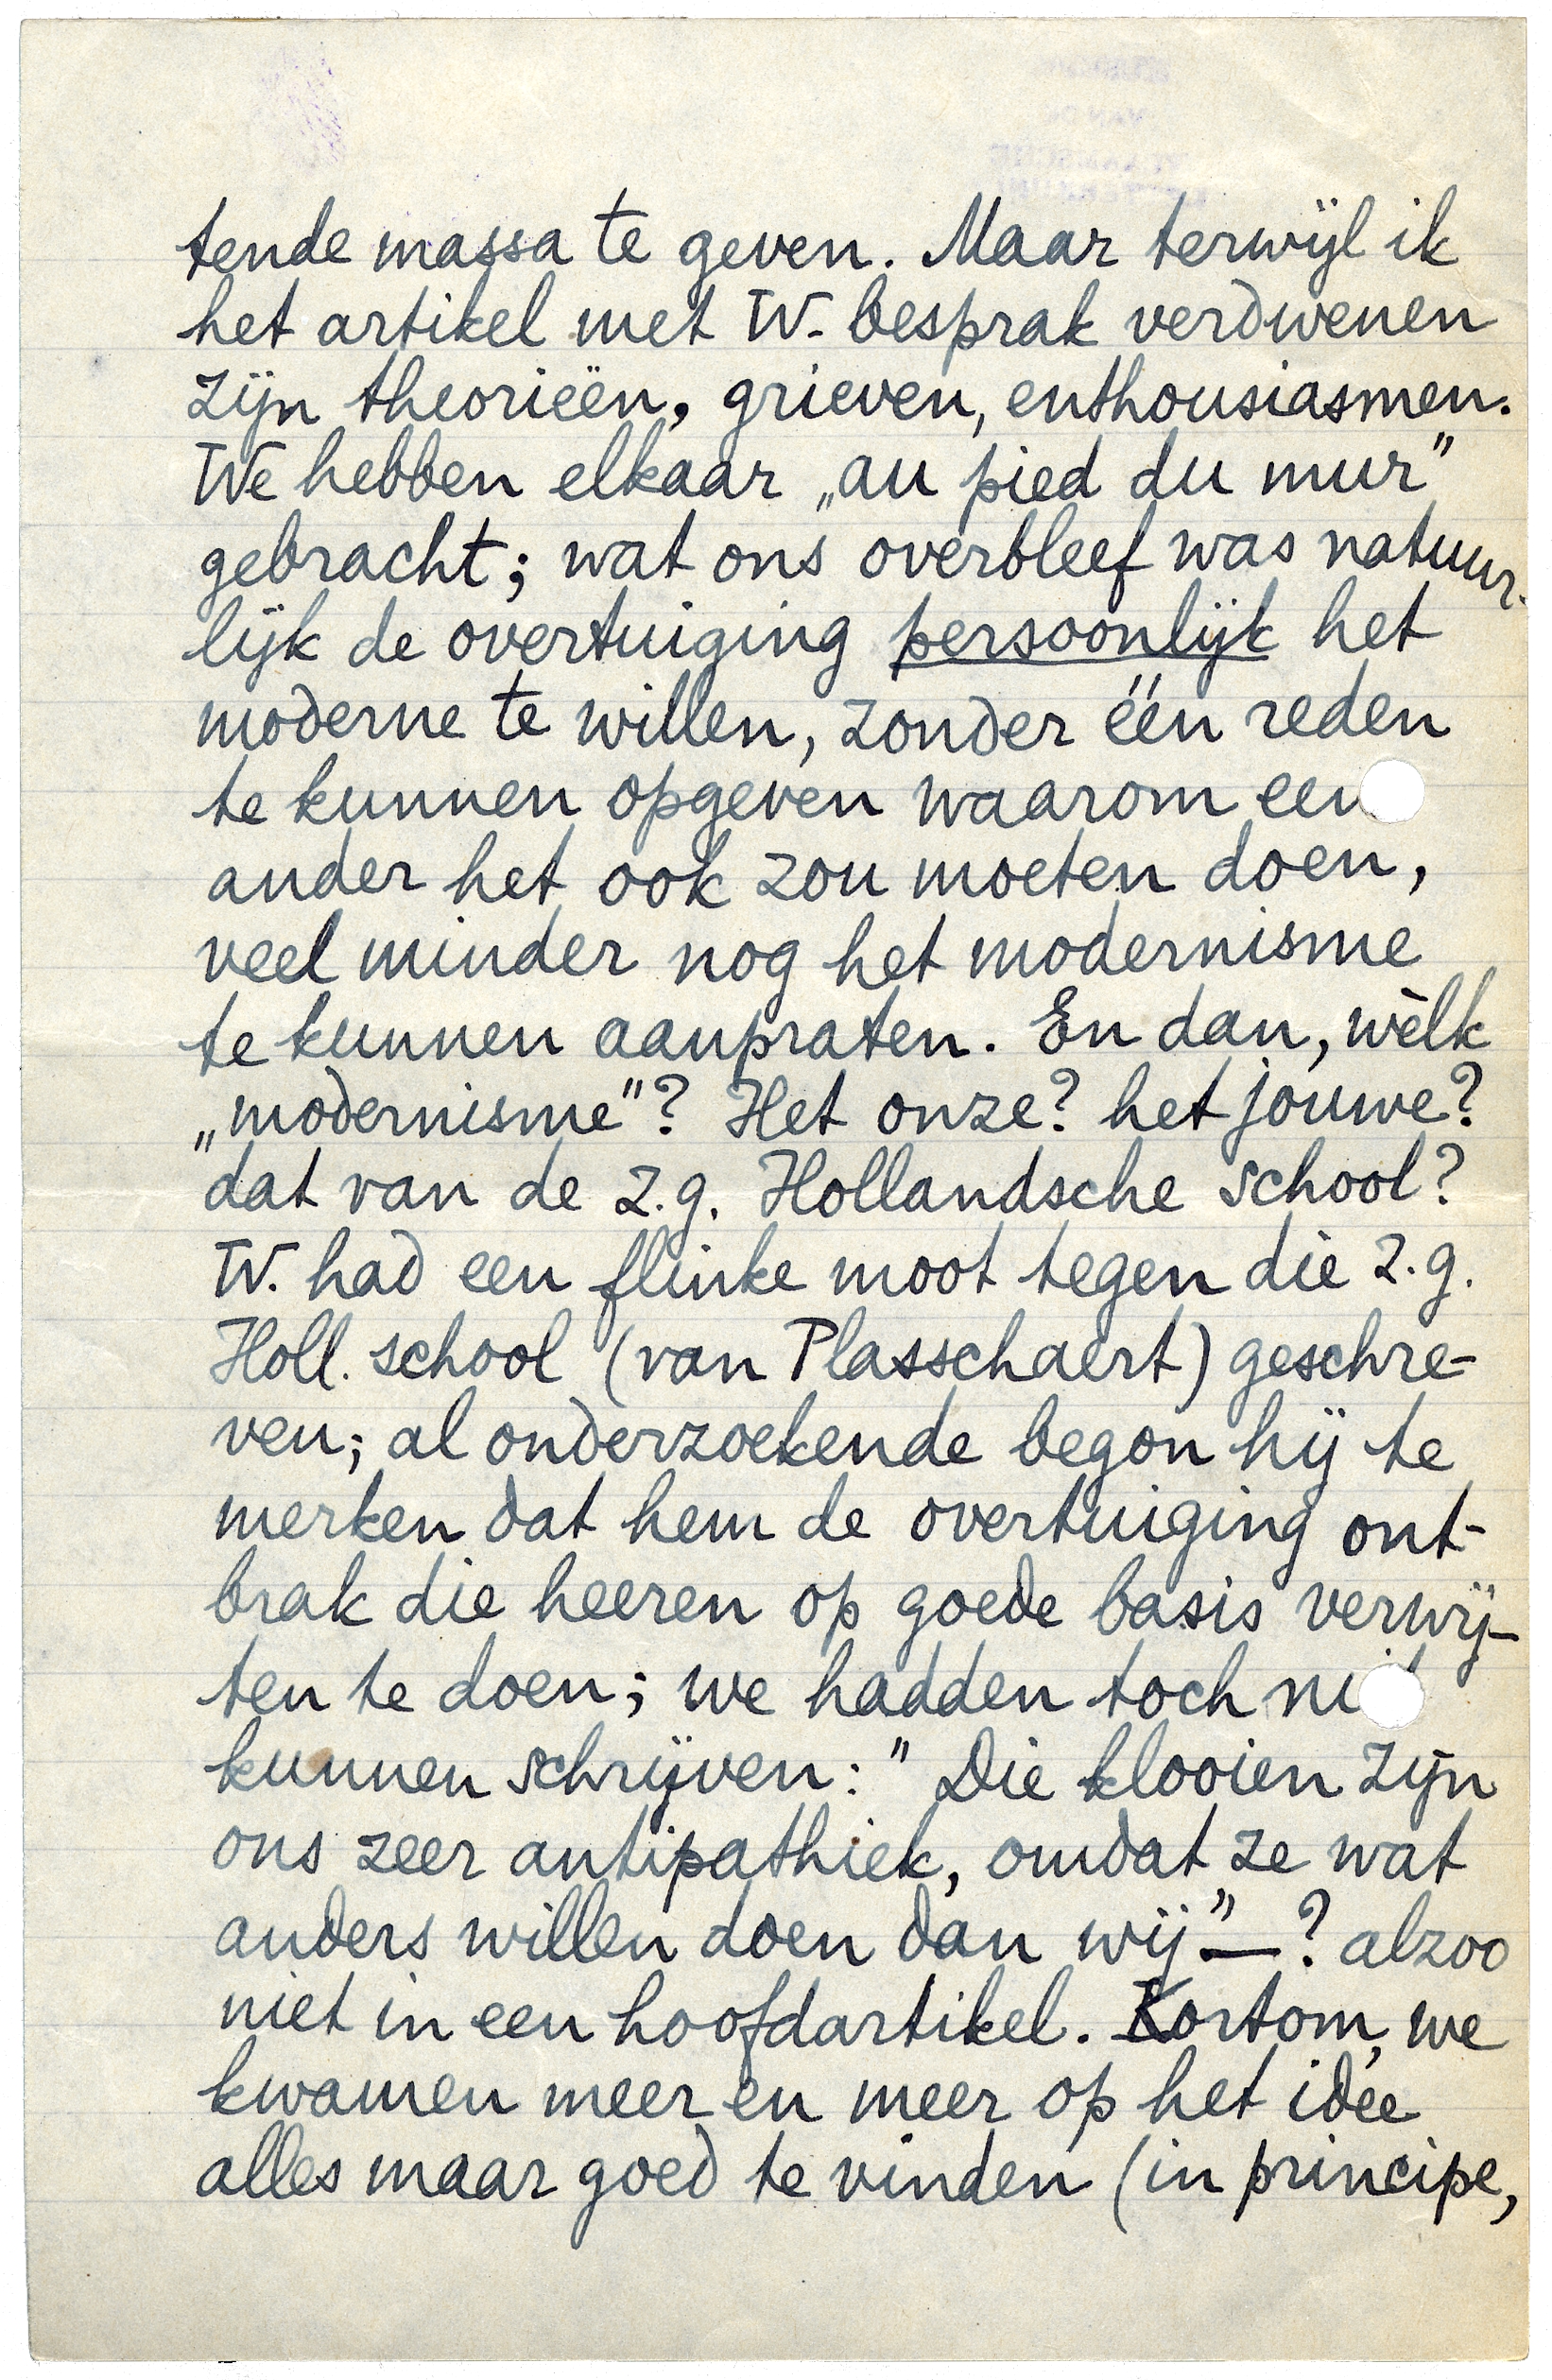 tende massa te geven. Maar terwijl ik
het artikel met W. besprak verdwenen
zijn theorieën, grieven, enthousiasmen.
We hebben elkaar „au pied du mur”
gebracht; wat ons overbleef was natuur-
lijk de overtuiging persoonlijk het
moderne te willen, zonder één reden
te kunnen opgeven waarom een
ander het ook zou moeten doen,
veel minder nog het modernisme
te kunnen aanpraten. En dan, wèlk
„modernisme”? Het onze? het jouwe?
dat van de z.g. Hollandsche school?
W. had een flinke moot tegen die z.g.
Holl. school (van Plasschaert) geschre-
ven; al onderzoekende begon hij te
merken dat hem de overtuiging ont-
brak die heeren op goede basis verwij-
ten te doen; we hadden toch niet
kunnen schrijven: ”Die klooien zijn
ons zeer antipathiek, omdat ze wat
anders willen doen dan wij”—? alzoo
niet in een hoofdartikel. Kortom, we
kwamen meer en meer op het idée
alles maar goed te vinden (in principe,